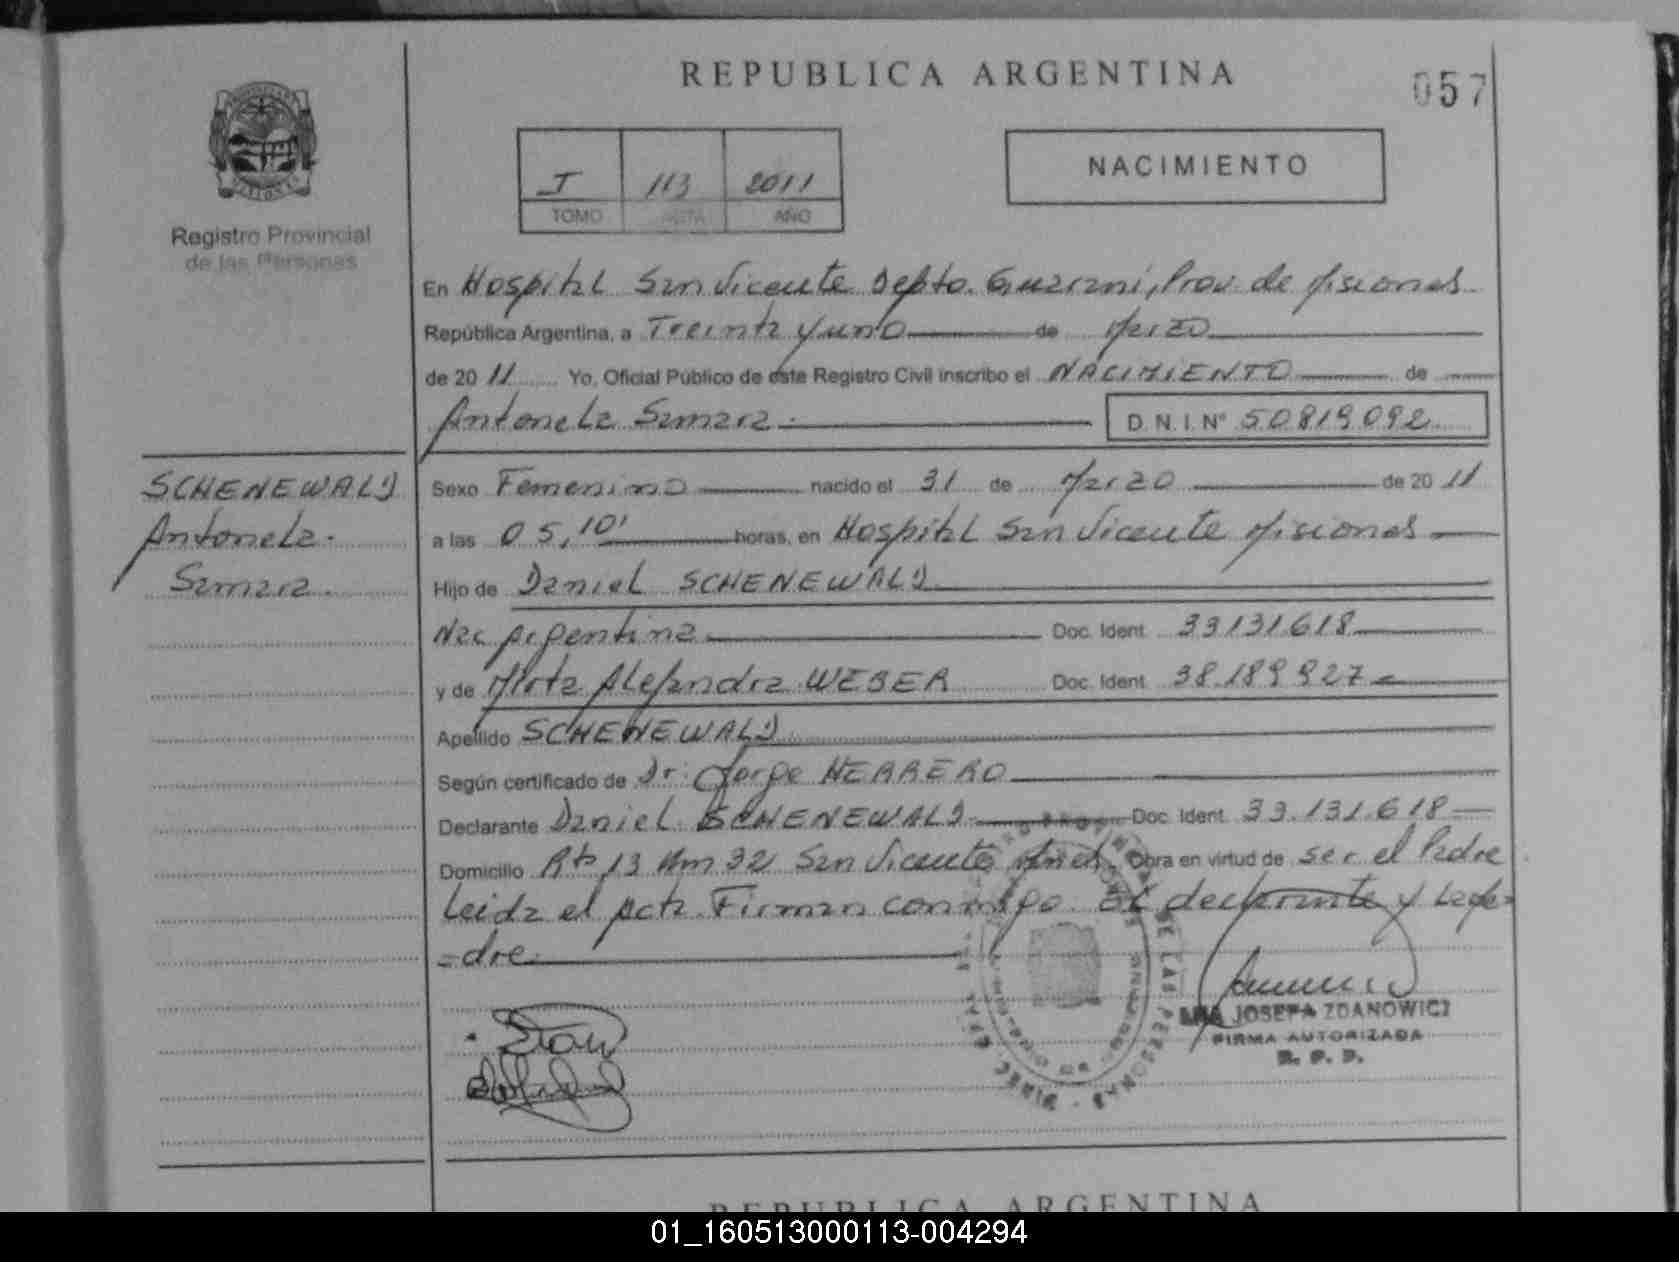 REPUBLICA ARGENTINA
057
PROVINCIA DE MISIONES
Registro Provincial
de las Personas
I 113 2011
TOMO ACTA AÑO
NACIMIENTO
En Hospital San Vicente Depto. Guarani, Prov. de Misiones
República Argentina, a Treinta y uno de Marzo
de 20 11 Yo, Oficial Público de este Registro Civil inscribo el NACIMIENTO de
Antonela Samara. D.N.I. Nº 50819092
SCHENEWALD
Antonela.
Samara.
Sexo Femenino nacido el 31 de Marzo de 20 11
a las 05,10' horas, en Hospital San Vicente Misiones
Hijo de Daniel SCHENEWALD
Nac Argentina Doc. Ident. 33131618
y de Mirta Alejandra WEBER Doc. Ident. 38.189927
Apellido SCHENEWALD
Según certificado de Dr: Jorge HERRERO
Declarante Daniel SCHENEWALD Doc. Ident. 33.131.618
Domicilio Rta 13 Km 32 San Vicente Mnes. Obra en virtud de ser el Padre
Leida el Acta Firman conmigo El declarante y La Ma=
=dre.
JOSEFA ZDANOWICZ
FIRMA AUTORIZADA
R. P. P.
REPUBLICA ARGENTINA
01_160513000113-004294